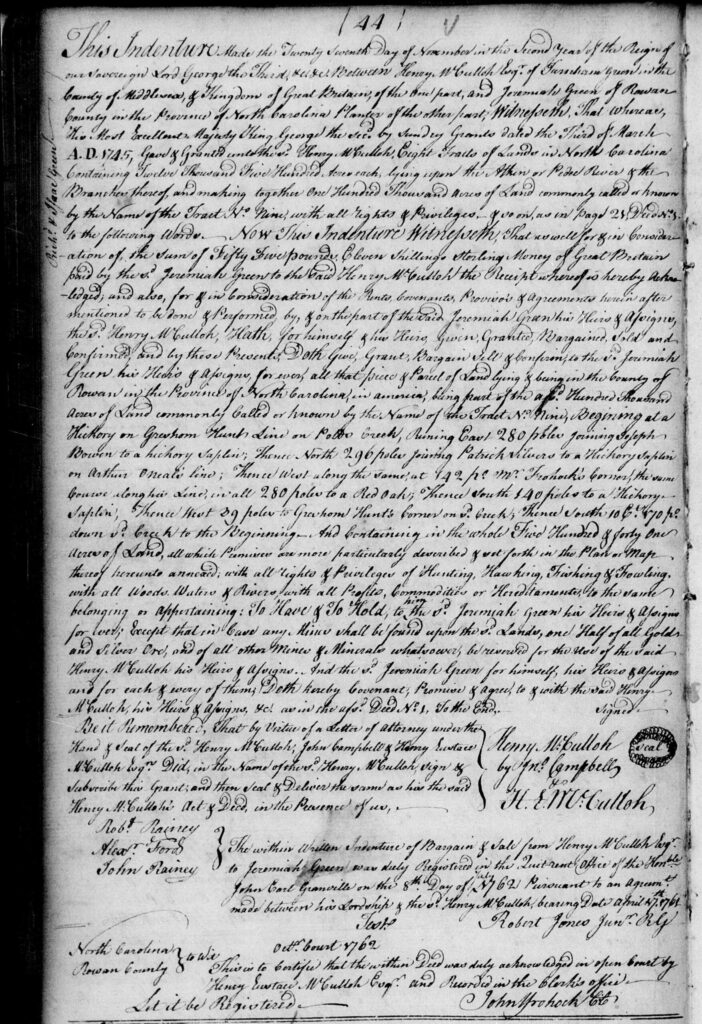 ( 44 )
This Indenture Made the Twenty Seventh Day of November in the Second Year of the Reign of
our Sovereign Lord George the Third, &c &c Between Henry McCulloh Esqr. of Turnham Green in the
County of Middlesex, & Kingdom of Great Britain, of the One part, and Jeremiah Green of Rowan
County in the Province of North Carolina Planter of the other part; Witnesseth, That whereas,
His Most Excellent Majesty King George the Secd. by Sundry Grants dated the Third of March
A.D. 1745, Gave & Granted unto the sd. Henry McCulloh, Eight Tracts of Lands in North Carolina
Containing Twelve Thousand Five Hundred Acres each, lying upon the Atkin or Pedee River & the
Branches thereof, and making together One Hundred Thousand Acres of Land commonly called or known
by the Name of the Tract No. Nine, with all rights & Privileges. & so on, as in Page 21, Deed No. 1.
to the following Words. Now This Indenture Witnesseth, That as well for & in Considar-
ation of, the Sum of Fifty Five pounds, Eleven Shillings Sterling Money of Great Britain
paid by the sd. Jeremiah Green to the said Henry McCulloh the Receipt whereof is hereby Acknow-
ledged; and also, for & in Consideration of the Rents, Covenants, Provisoes & Agreements herein after
mentioned to be done & Performed, by, & on the part of the said Jeremiah Green his Heirs & Assigns,
the sd. Henry McCulloh, Hath, for himself & his Heirs, Given, Granted, Bargained, Sold and
Confirmed, and by these Presents, Doth Give, Grant, Bargain Sell & Confirm, to the sd. Jeremiah
Green his Heirs & Assigns, for ever, all that piece & Parcel of Land lying & being in the County of
Rowan in the Province of North Carolina, in america, being part of the afsd. Hundred Thousand
Acres of Land commonly Called or known by the Name of the Tract No. Nine, Begining at a
Hickory on Gresham Hunts Line on Potts Creek, Runing East 280 poles joining Joseph
Bowen to a hickory Saplin; Thence North 296 poles joining Patrick Silvers to a Hickory Saplin
on Arthur Oneals line; Thence West along the same, at 142 ps. Mr. Frohock's Corner, the same
Course along his Line, in all 280 poles to a Red Oak; Thence South 140 poles to a Hickory
Saplin, Thence West 39 poles to Gresham Hunt's Corner on sd. Creek; Thence South 10 170 ps.
down sd. Creek to the Beginning And Containing in the whole Five Hundred & forty One
Acres of Land, all which Premises are more particularly described & set forth in the Plan or Map
thereof hereunto annexed; with all rights & Privileges of Hunting, Hawking, Fishing & Fowling.
with all Woods Waters & Rivers, with all Profits, Commodities or Hereditaments, to the same
belonging or Appertaining: To Have & To Hold, to him the sd. Jeremiah Green his Heirs & Assigns
for ever; Except that in Case any Mines shall be found upon the sd. Lands, one Half of all Gold
and Silver Ore, and of all other Mines & Minerals whatsoever, be reserved for the Use of the said
Henry McCulloh his Heirs & Assigns. And the sd. Jeremiah Green for himself, his Heirs & Assigns
and for each & every of them; Doth hereby Covenant, Promise & Agree, to & with the said Henry
McCulloh, his Heirs & Assigns, &c. as in the afsd. Deed No. 1, To the End. Signed
Be it Remembered, That by Virtue of a Letter of Attorney under the
Hand & Seal of the sd. Henry McCulloh, John Campbell & Henry Eustace
McCulloh Esqrs. Did, in the Name of the sd. Henry McCulloh, Sign &
Subscribe this Grant; and then Seal & Deliver the same as his the said
Henry McCulloh's Act & Deed, in the Presence of us,
Henry McCulloh
by Jno. Campbell
&
H. E. McCulloh
Seal
Robt. Rainey
Alexr. Ford
John Rainey
The within Written Indenture of Bargain & Sale from Henry McCulloh Esqr.
to Jeremiah Green was duly Registered in the Quit-rent Office of the Honble
John Earl Granville on the 8th. Day of July 1762 Pursuant to an Agreemt.
made between his Lordship & the sd. Henry McCulloh, bearing Date April 17th. 1761
Test. Robert Jones Junr. RG
North Carolina
Rowan County } to wit
Octr. Court 1762
This is to Certifie that the within Deed was duly acknowledged in open Court by
Henry Eustace McCulloh Esqr. and Recorded in the Clerk's office
Let it be Registered John Frohock CC